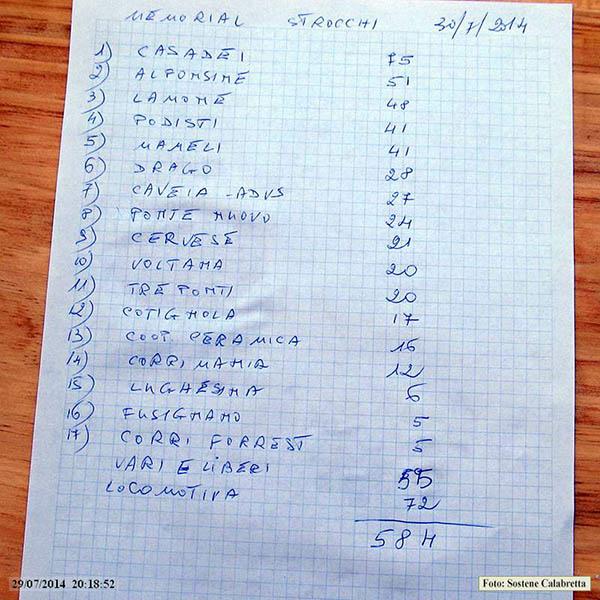 MEMORIAL STROCCHI 30/7/2014
1) CASADEI 75
2) ALFONSINE 51
3) LAMONE 48
4) PODISTI 41
5) MAMELI 41
6) DRAGO 28
7) CAVEIA-ADVS 27
8) PONTE NUOVO 24
9) CERVESE 21
10) VOLTANA 20
11) TRE PONTI 20
12) COTIGNOLA 17
13) COOP. CERAMICA 16
14) CORRI MANIA 12
15) LUGHESINA 6
16) FUSIGNANO 5
17) CORRI FORREST 5
VARI E LIBERI 55
LOCOMOTIVA 72
584
29/07/2014 20:18:52
Foto: Sostene Calabretta